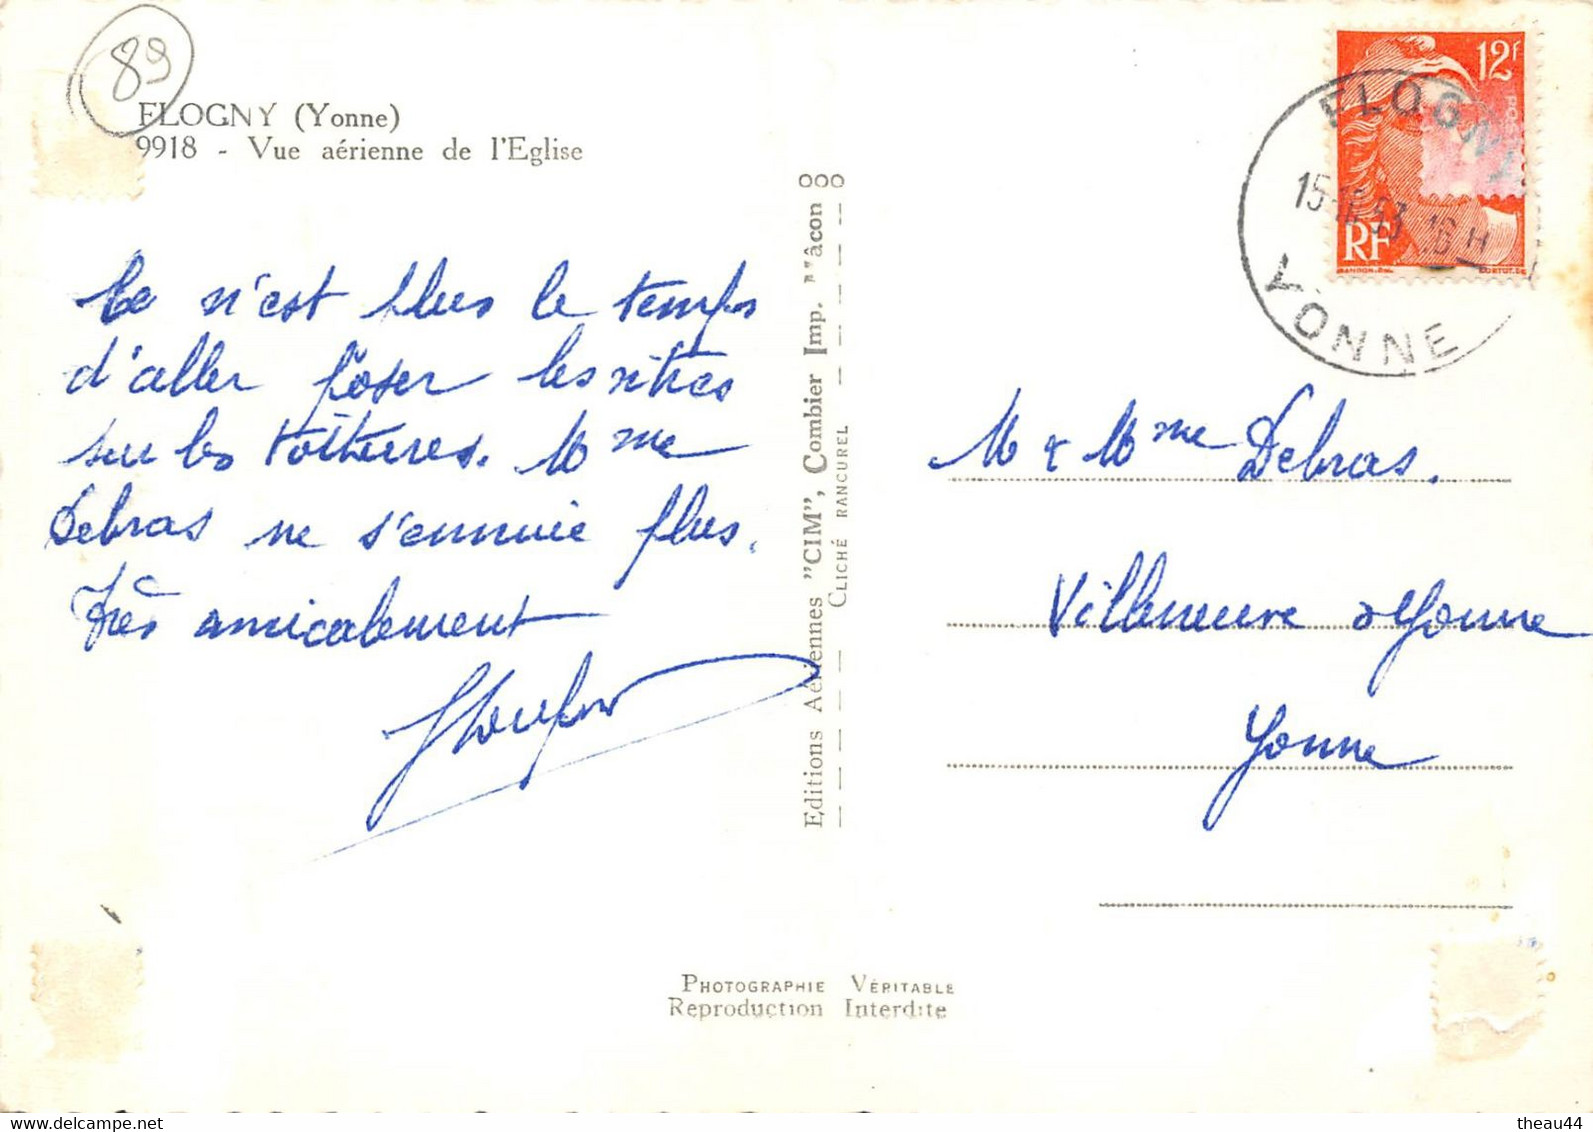 89
FLOGNY (Yonne)
9918 - Vue aérienne de l'Eglise
Ce n'est plus le temps
d'aller poser les vitres
sur les toitures. Mme
Debras ne s'ennuie plus.
Très amicalement
Editions Aériennes "CIM", Combier Imp. Mâcon
CLICHÉ RANCUREL
12F
RF
FLOGNY
15 53 16H
YONNE
M & Mme Debras.
Villeneuve s/Yonne
Yonne
PHOTOGRAPHIE VÉRITABLE
Reproduction Interdite
theau44